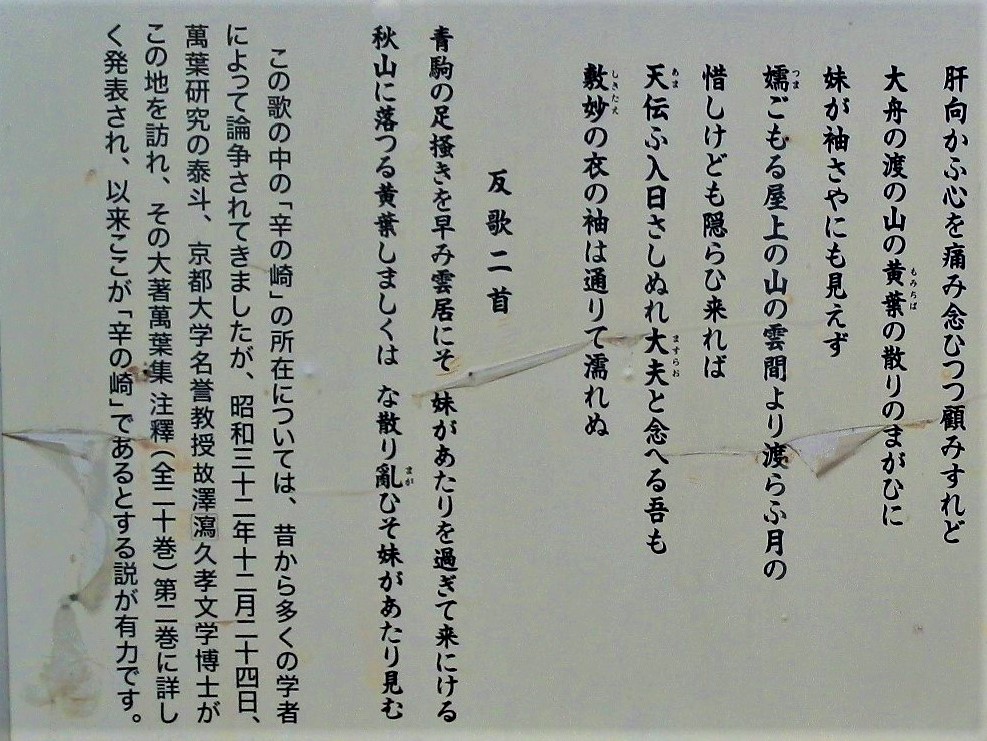 肝向かふ心を痛み念ひつつ顧みすれど
大舟の渡の山の黄葉の散りのまがひに
妹が袖さやにも見えず
嬬ごもる屋上の山の雲間より渡らふ月の
惜しけども隠らひ来れば
天伝ふ入日さしぬれ大夫と念へる吾も
敷妙の衣の袖は通りて濡れぬ
反歌二首
青駒の足掻きを早み雲居にそ 妹があたりを過ぎて来にける
秋山に落つる黄葉しましくは な散り亂ひそ妹があたり見む
この歌の中の「辛の崎」の所在については、昔から多くの学者
によって論争されてきましたが、昭和三十二年十二月二十四日、
萬葉研究の泰斗、京都大学名誉教授故澤瀉久孝文学博士が
この地を訪れ、その大著萬葉集 注釋(全二十巻)第二巻に詳し
く発表され、以来ここが「辛の崎」であるとする説が有力です。